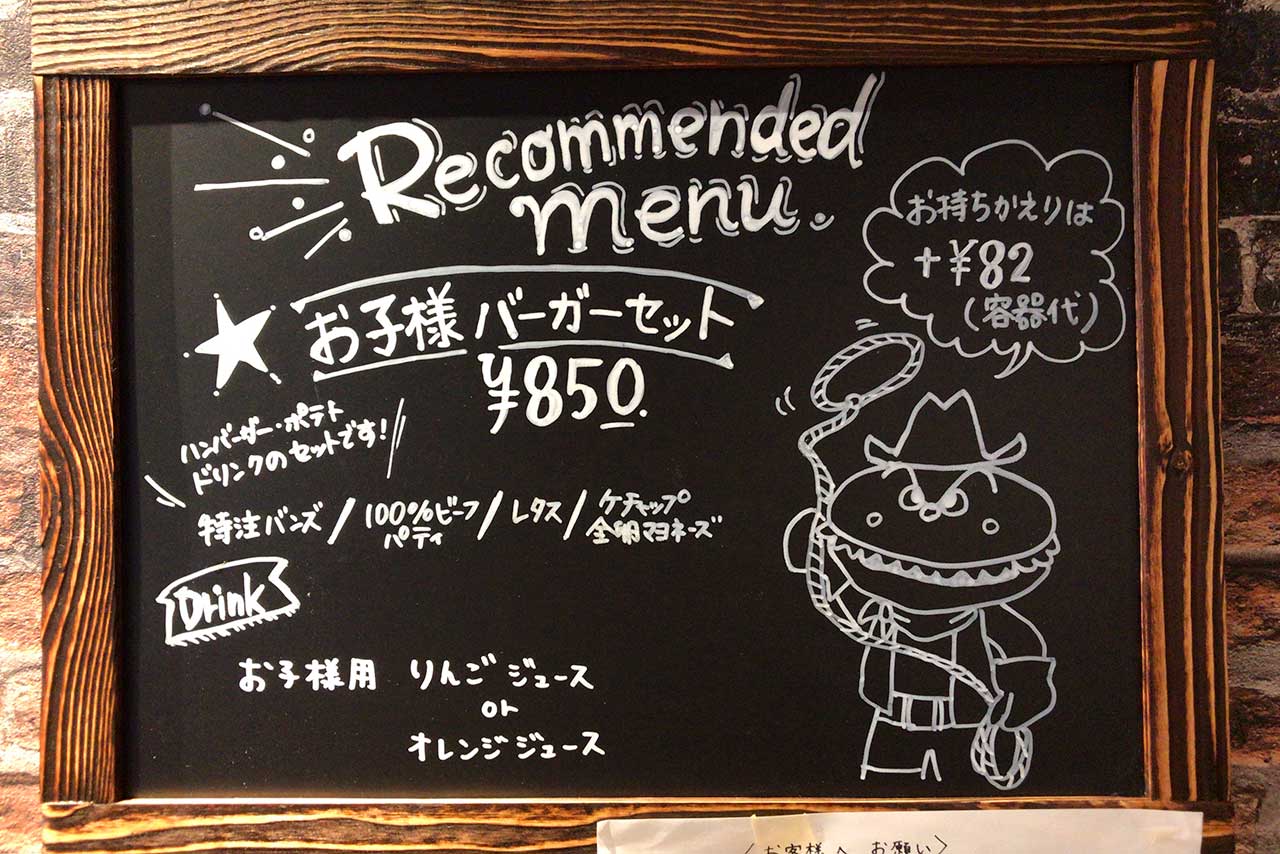 Recommended
menu.
お持ちかえりは
+¥82
(容器代)
お子様バーガーセット
¥850.
ハンバーガー・ポテト
ドリンクのセットです!
特注バンズ/100%ビーフパティ/レタス/ケチャップ
全卵マヨネーズ
Drink
お子様用 りんごジュース
or
オレンジジュース
〈お客様へ お願い〉